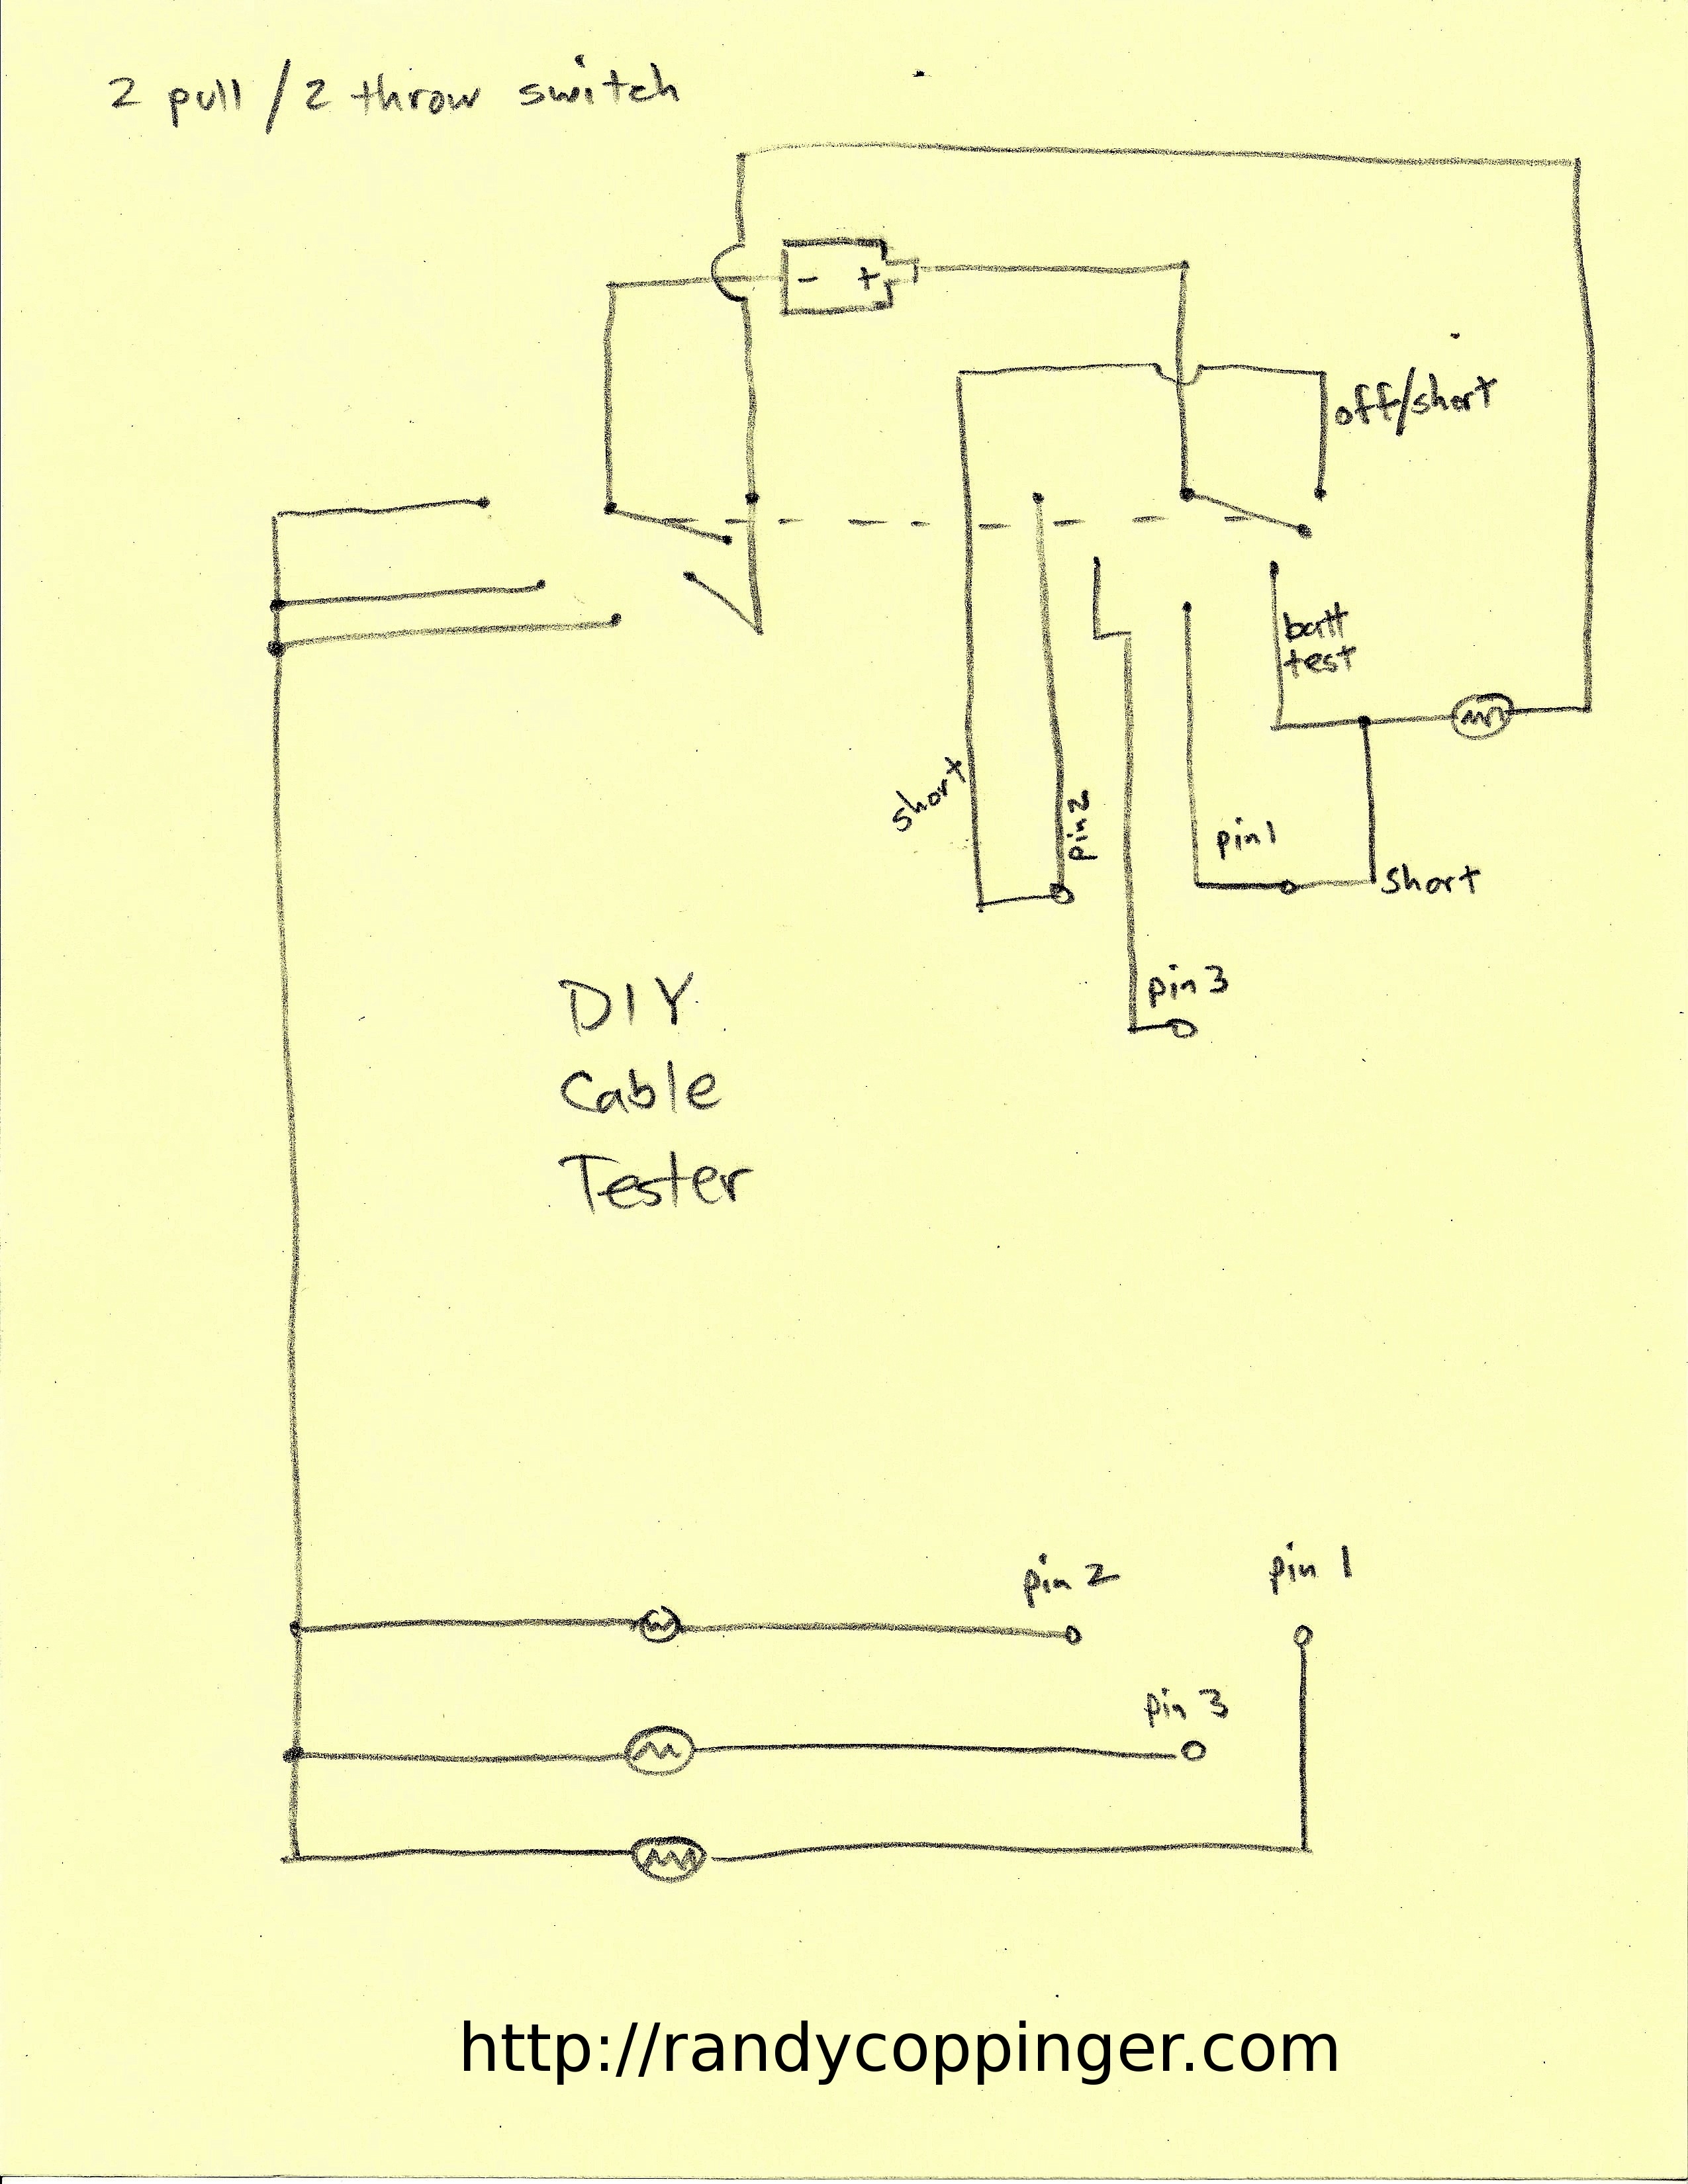 2 pull / 2 throw switch
- +
off/short
batt
test
short
pin 2
pin 1
short
pin 3
DIY
Cable
Tester
pin 2
pin 1
pin 3
http://randycoppinger.com